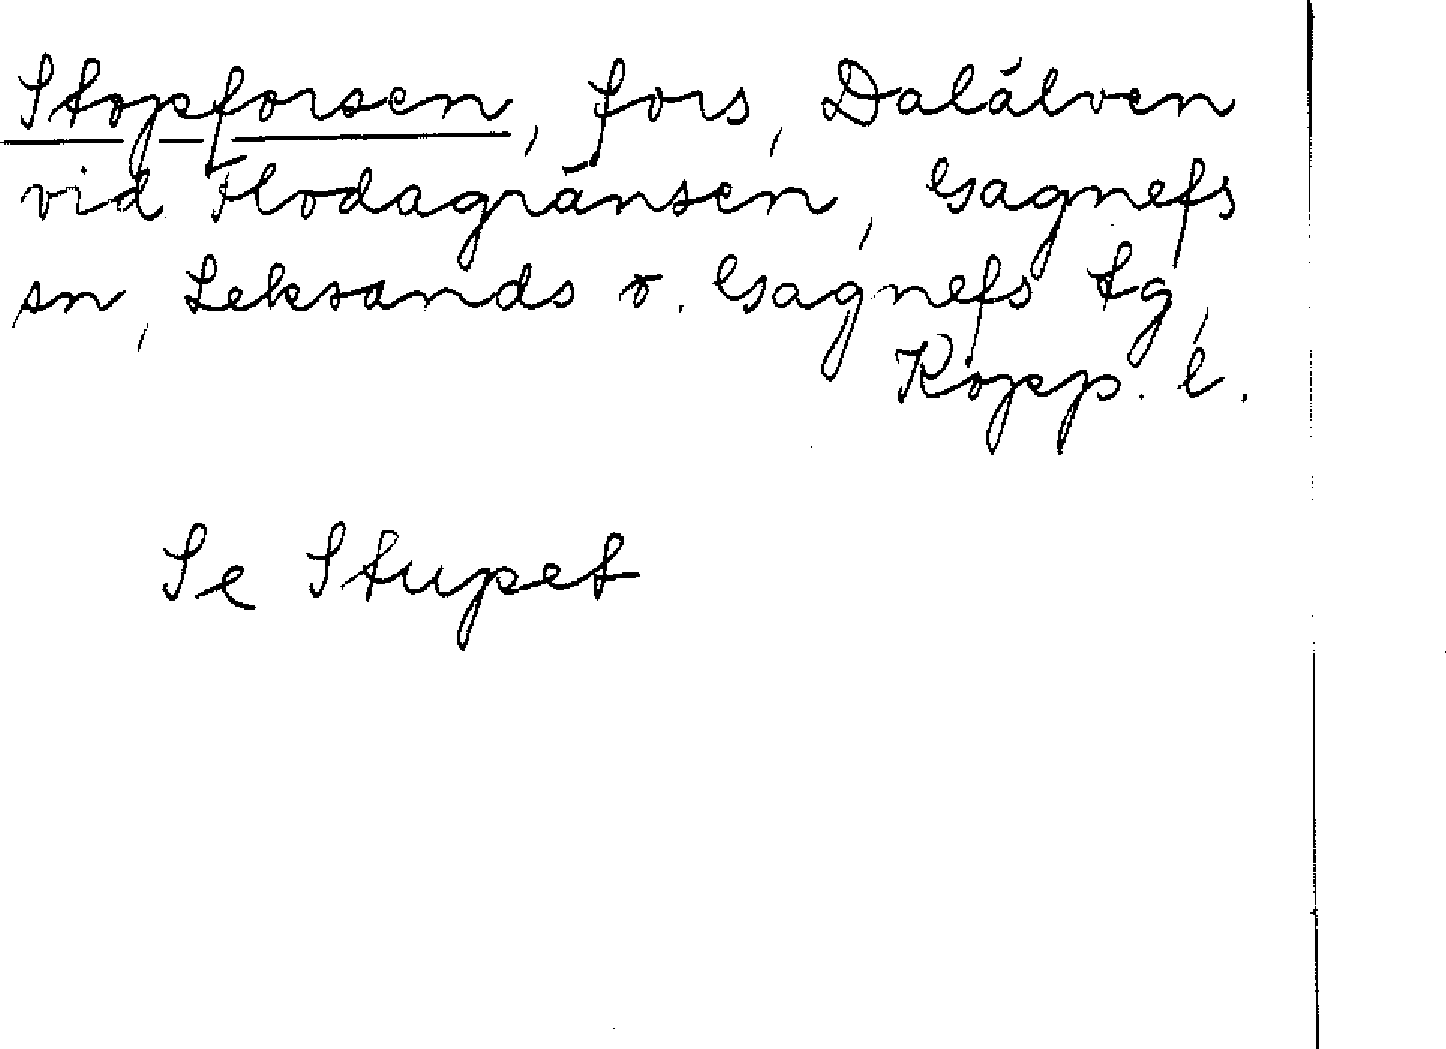 Stopforsen, fors, Dalälven
vid Flodagränsen, Gagnefs
sn, Leksands o. Gagnefs tg,
Kopp. l.
Se Stupet